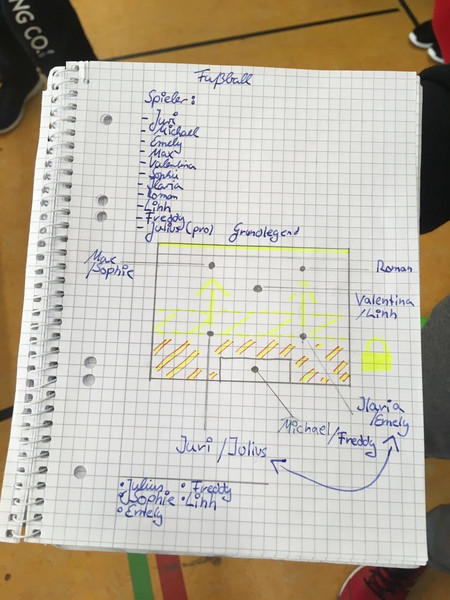 NG CO.
Fußball
Spieler:
- Juri
- Michael
- Emely
- Max
- Valentina
- Sophie
- Ilaria
- Roman
- Linh
- Freddy
- Julius (pro)
Grundlegend
Max
/Sophie
Roman
Valentina
/Linh
Ilaria
/Emely
Michael/Freddy
Juri/Julius
• Julius • Freddy
• Sophie • Linh
• Emely